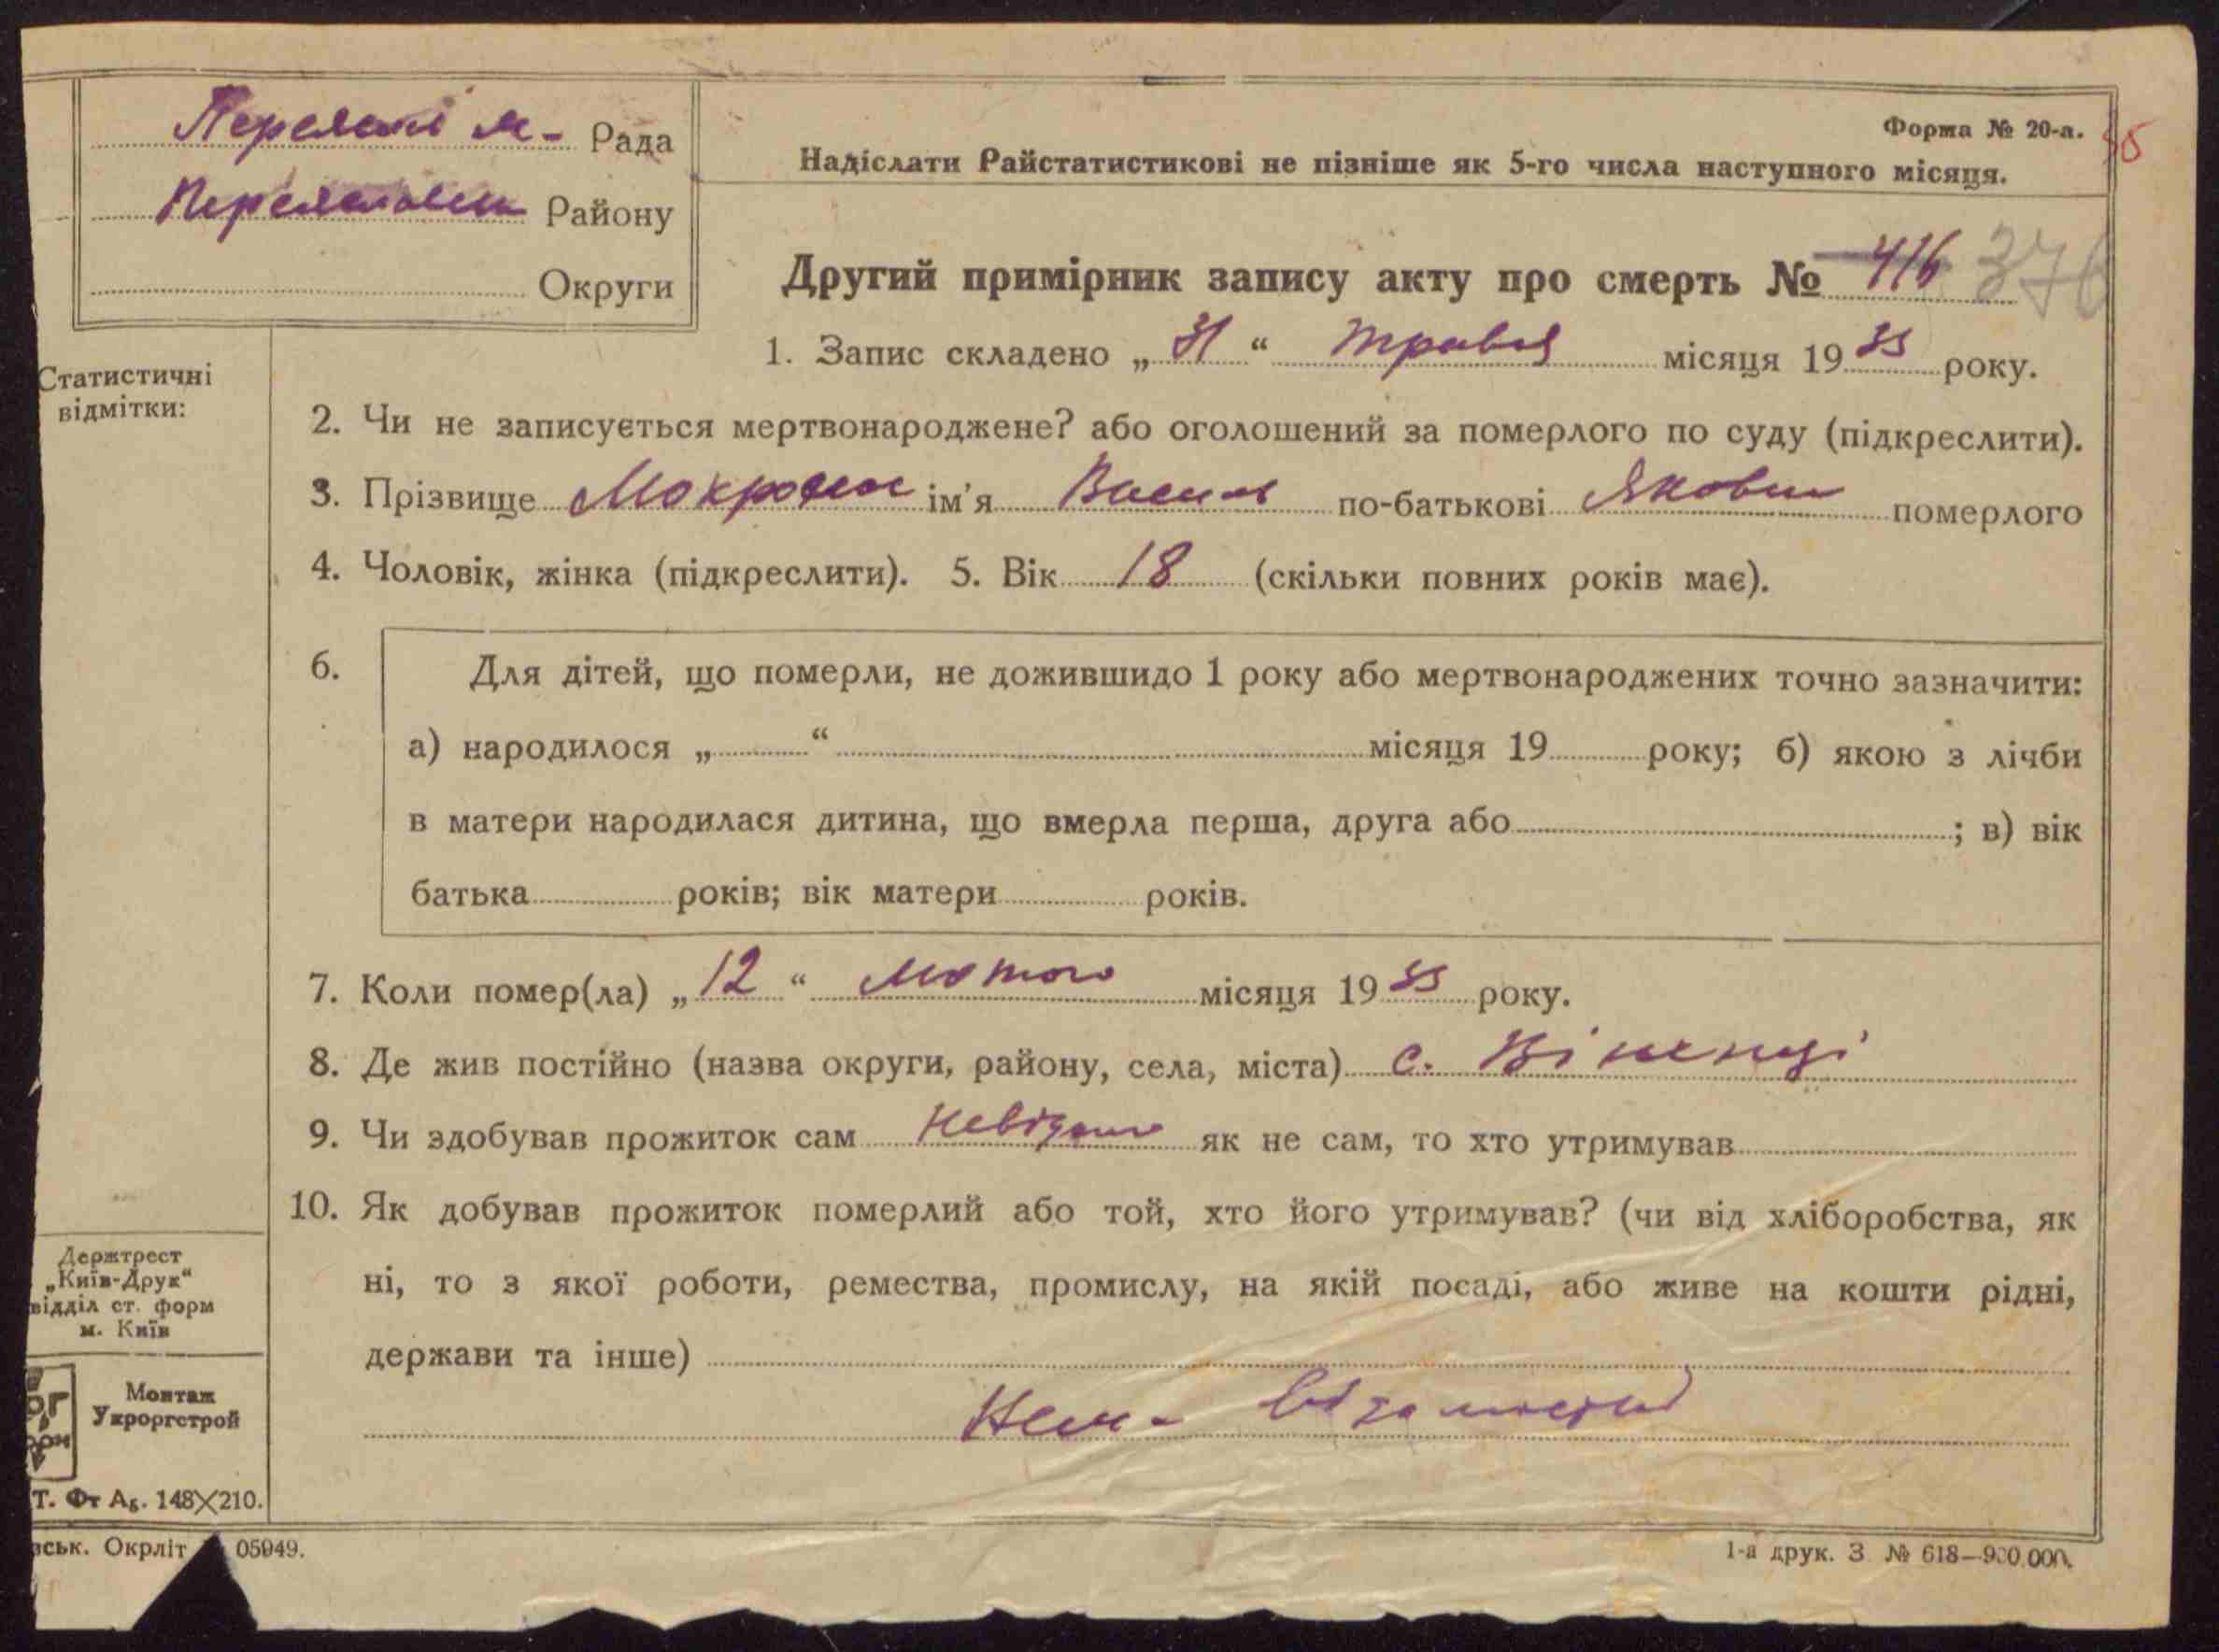 Рада
Району
Округи
Форма № 20-а.
Надіслати Райстатистикові не пізніше як 5-го числа наступного місяця.
Другий примірник запису акту про смерть № 416 376
1. Запис складено „31“ травня місяця 1933 року.
Статистичні
відмітки:
2. Чи не записується мертвонароджене? або оголошений за померлого по суду (підкреслити).
3. Прізвище ім'я Василь по-батькові Якович померлого
4. Чоловік, жінка (підкреслити). 5. Вік 18 (скільки повних років має).
6. Для дітей, що померли, не дожившидо 1 року або мертвонароджених точно зазначити:
а) народилося „ “ місяця 19 року; б) якою з лічби
в матери народилася дитина, що вмерла перша, друга або ; в) вік
батька років; вік матери років.
7. Коли помер(ла) „12“ лютого місяця 1933 року.
8. Де жив постійно (назва округи, району, села, міста) с. Віненці
9. Чи здобував прожиток сам Невідомо як не сам, то хто утримував
10. Як добував прожиток померлий або той, хто його утримував? (чи від хліборобства, як
ні, то з якої роботи, ремества, промислу, на якій посаді, або живе на кошти рідні,
держави та інше)
Держтрест
„Київ-Друк“
відділ ст. форм
м. Київ
Монтаж
Укроргстрой
Т. Фт А5. 148×210.
вськ. Окрліт 05949.
1-а друк. З № 618—900.000.